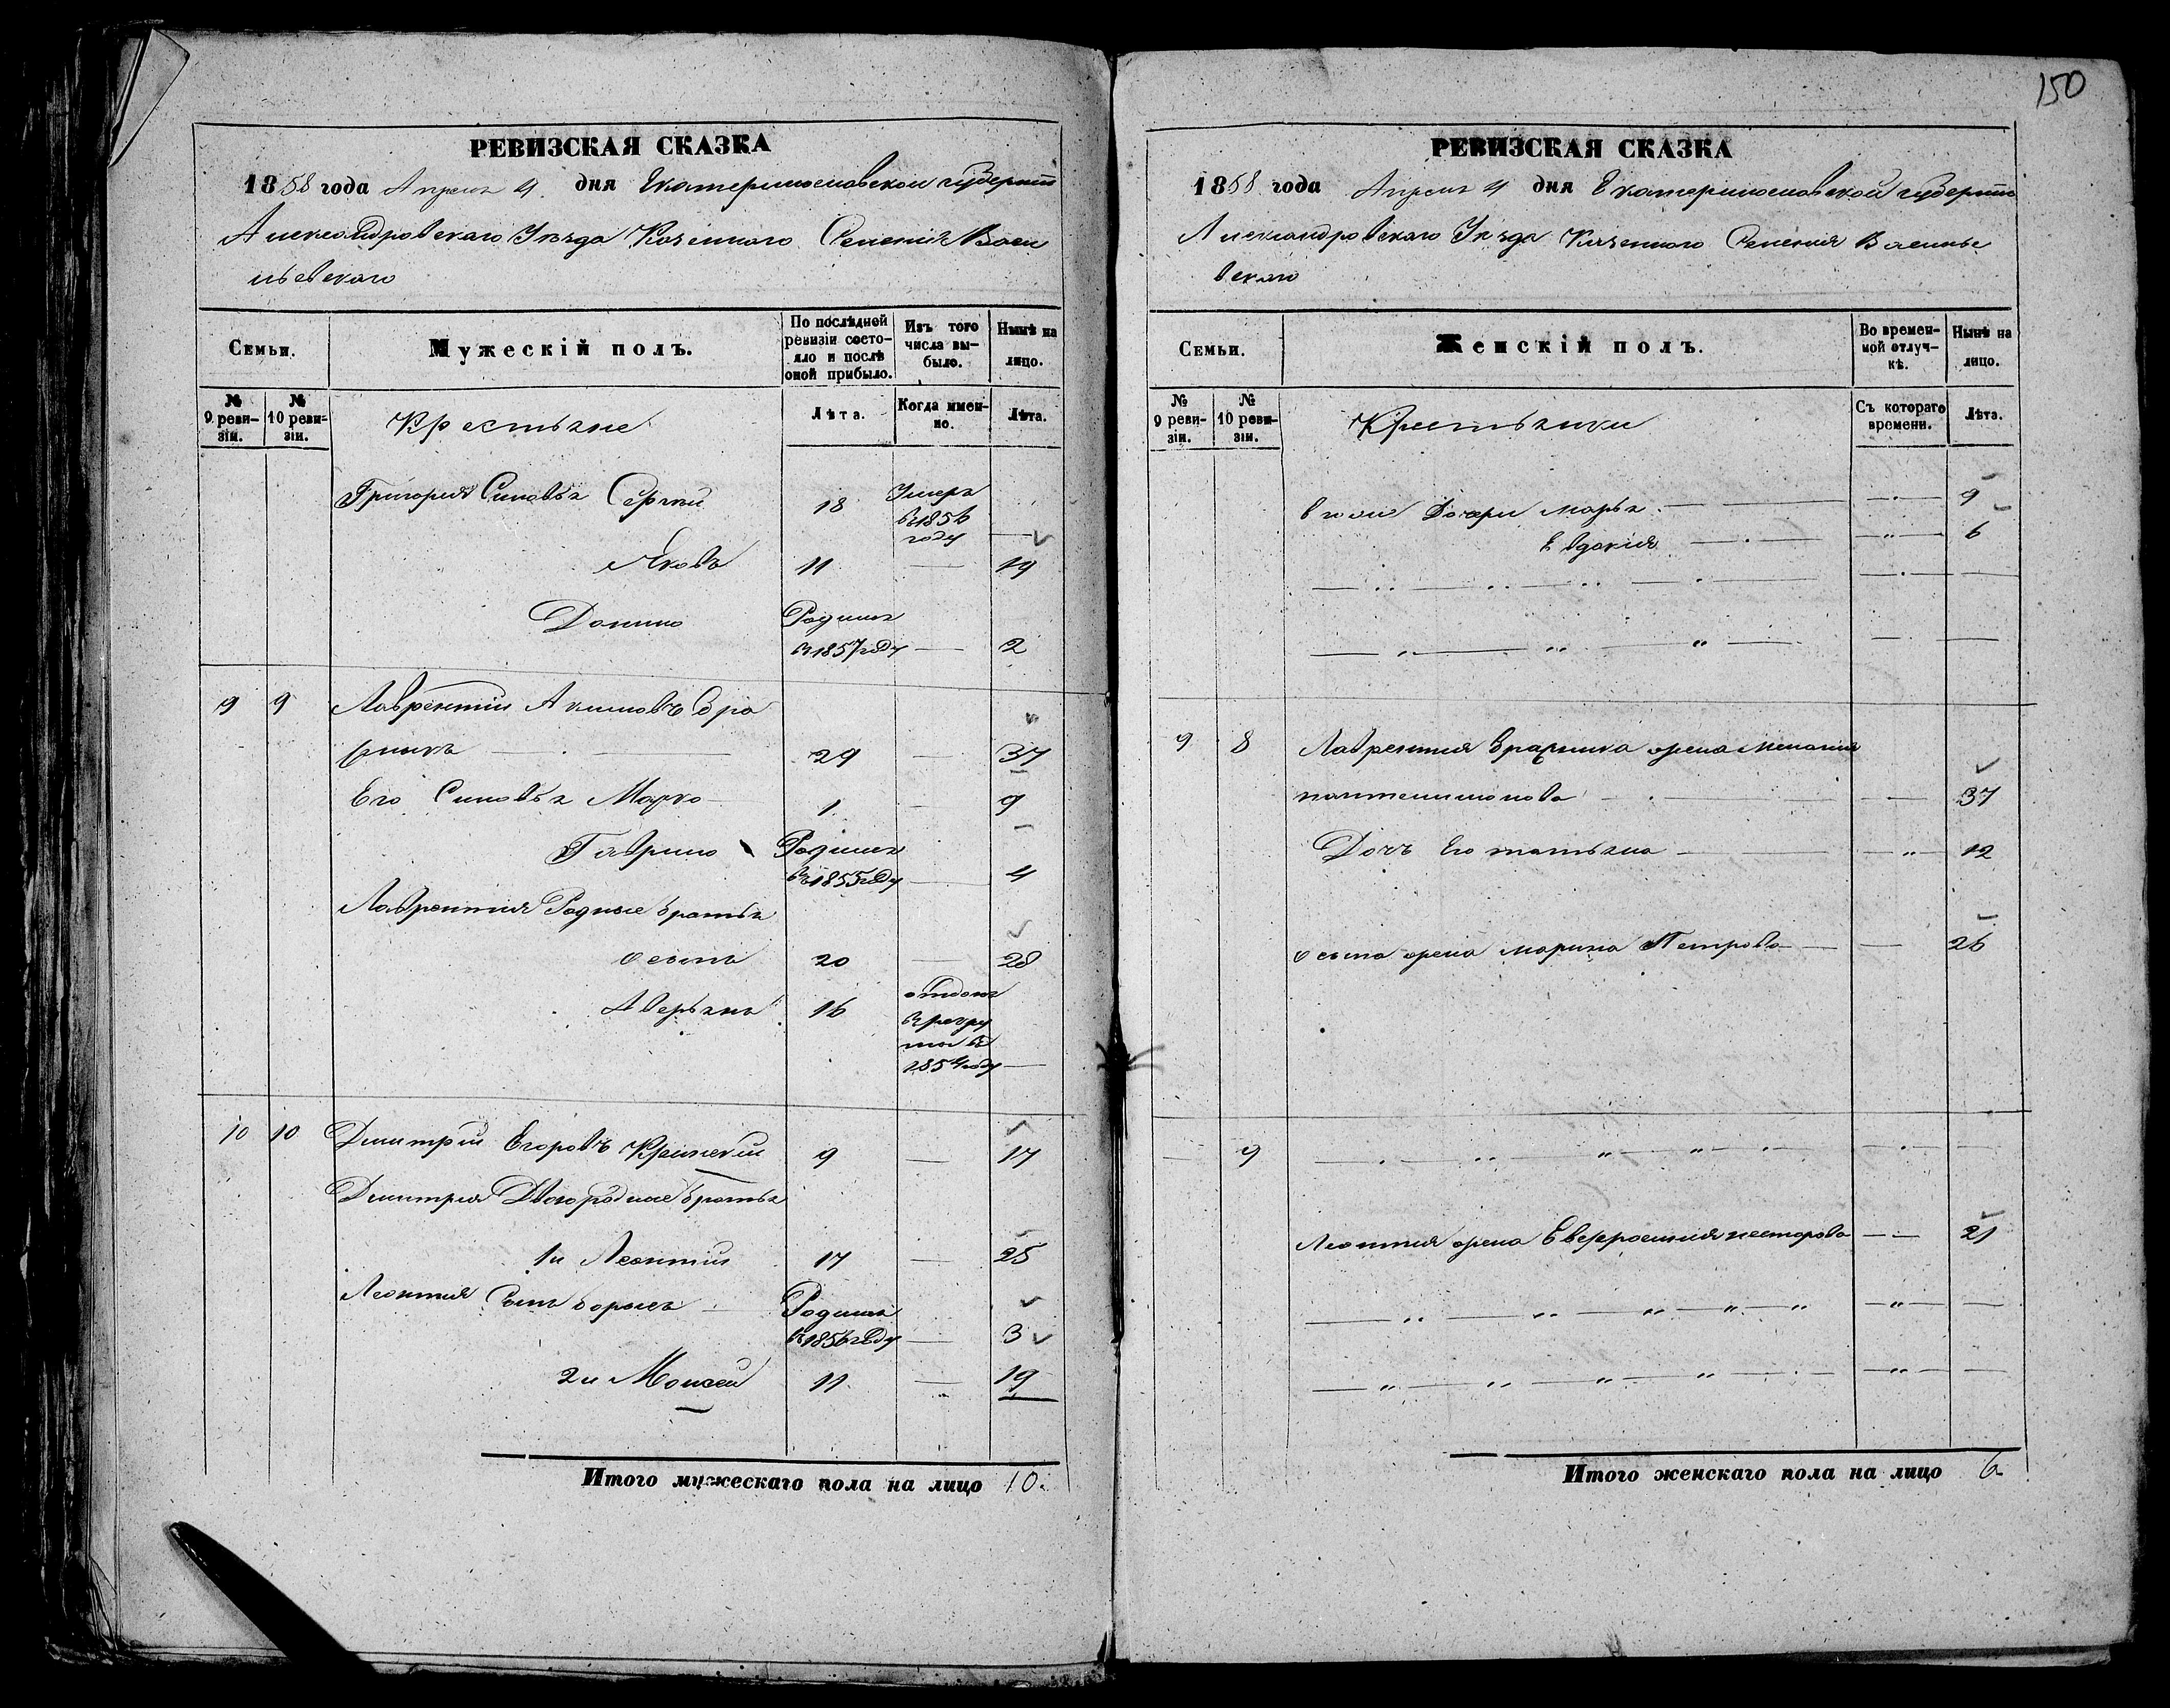 РЕВИЗСКАЯ СКАЗКА
1858 года Апреля 4 дня Екатеринославской губернии
Александровскаго Уезда Казеннаго Селения Васи
льевскаго
Семьи.
Мужескій полъ.
По послѣдней ревизіи состо-
яло и послѣ оной прибыло.
Изъ того числа вы-
было.
Нынѣ на лицо.
№ 9 реви-
зіи.
№ 10 реви-
зіи.
Крестьяне
Лѣта.
Когда имен-
но.
Лѣта.
Григория Синовья Сергий 18 Умеръ
въ 1856
году —
Яковъ 11 — 19
Данило Родился
въ 1857 году — 2
9 9 Лаврентий Акимовъ Бра
29 — 37
Его Синовья Марко 1 — 9
Гаврило Родился
въ 1855 году — 4
Лаврентия Родные братья
осипъ 20 — 28
Аверьянъ 16 отданъ
въ рекру
ты въ
1854 году —
10 10 Дмитрий Егоровъ Кринский 9 — 17
Дмитрия Двоюродные братья
1й Леонтий 17 — 25
Леонтия Сынъ борысъ Родился
въ 1856 году — 3
2й Моисей 11 — 19
Итого мужескаго пола на лицо 10.
150
РЕВИЗСКАЯ СКАЗКА
1858 года Апреля 4 дня Екатеринославской губернии
Александровскаго Уезда Казеннаго Селения Василье
вскаго
Семьи.
Женскій полъ.
Во времен-
ной отлуч-
кѣ.
Нынѣ на лицо.
№ 9 реви-
зіи.
№ 10 реви-
зіи.
Крестьянки
Съ котораго
времени.
Лѣта.
Дочери марья — 9
Евдокия — 6
9 8 Лаврентия жена мелания
пантелимонова — 37
Дочъ Его татьяна — 12
осипа жена марина Петрова — 26
— 9
Леонтия жена Евфросиния нестерова — 21
Итого женскаго пола на лицо 6